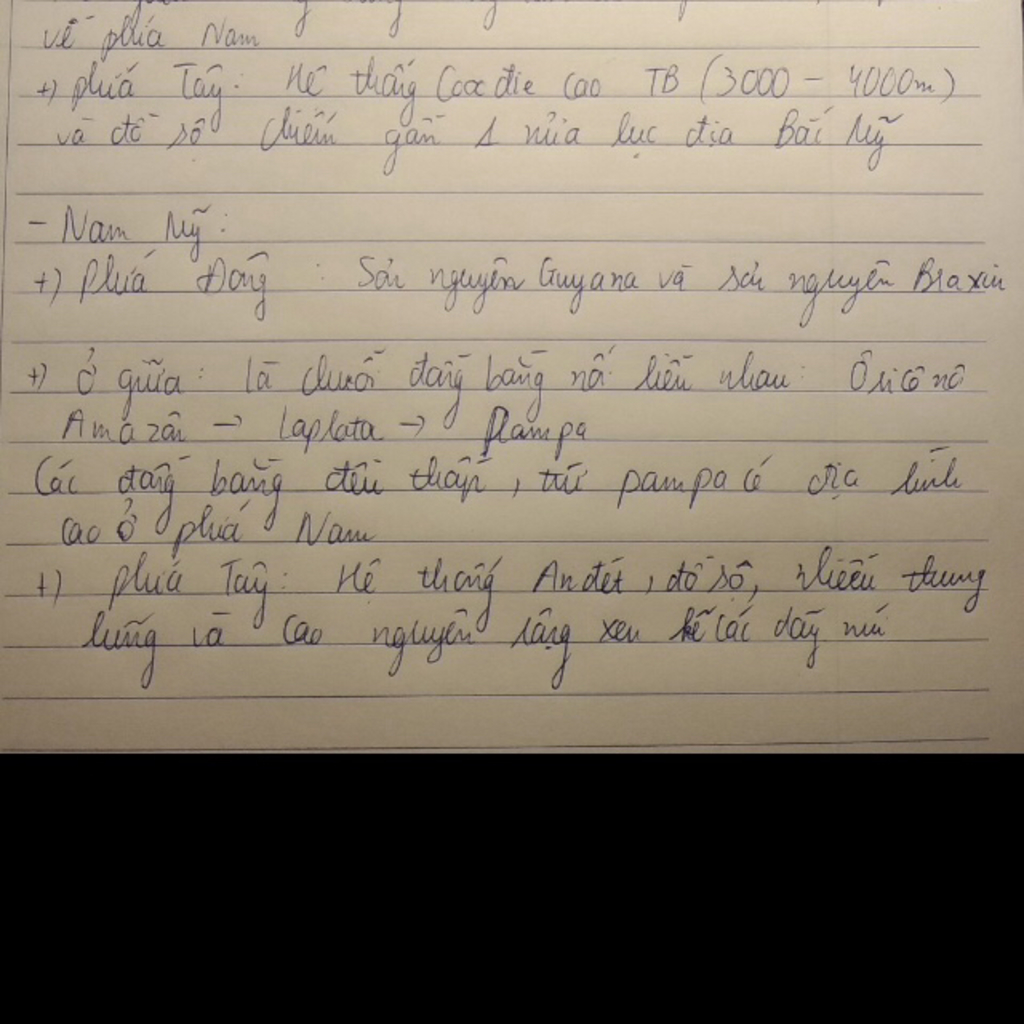 về phía Nam
+) phía Tây: Hệ thống Coocđie cao TB (3000 - 4000m)
và đồ sộ chiếm gần 1 nửa lục địa Bắc Mỹ
- Nam Mỹ:
+) Phía Đông : Sơn nguyên Guyana và sơn nguyên Braxin
+) Ở giữa: là chuỗi đồng bằng nối liền nhau: Ôricônô
Amazôn → Laplata → Pampa
Các đồng bằng đều thấp, trừ pampa có địa hình
cao ở phía Nam
+) phía Tây: Hệ thống Anđét, đồ sộ, nhiều thung
lũng và cao nguyên rộng xen kẽ các dãy núi